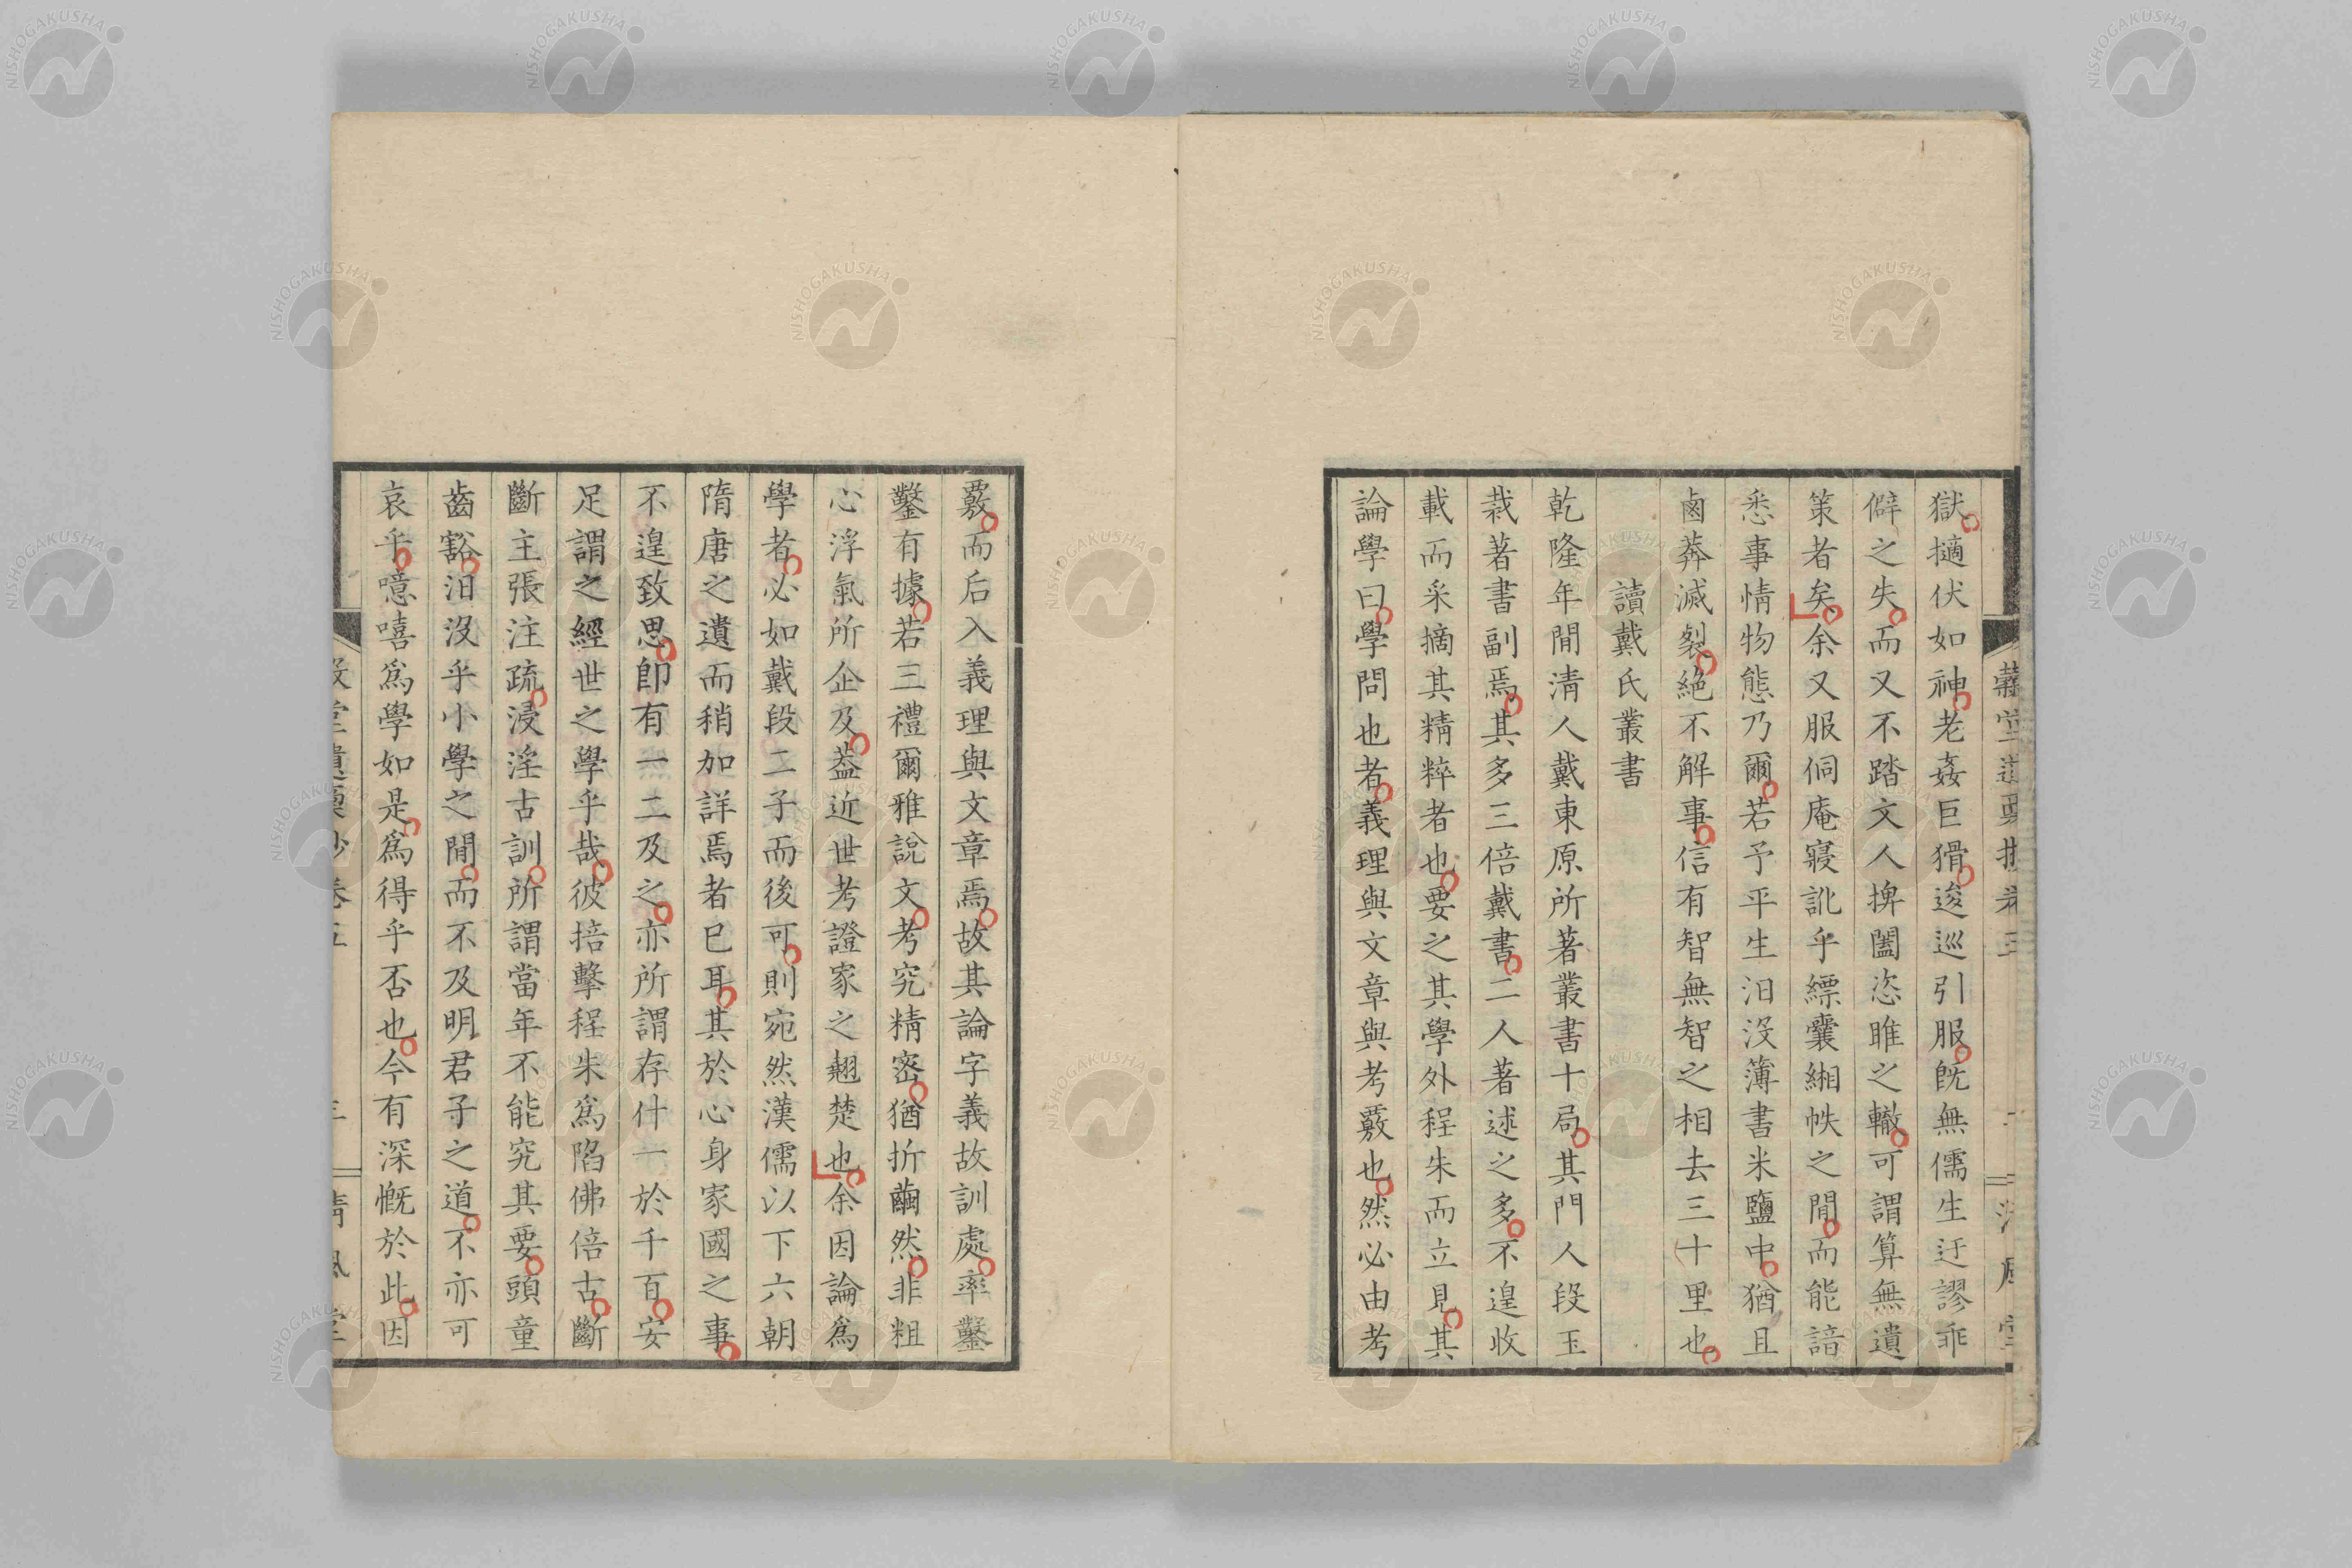 獄擿伏如神老姦巨猾逡巡引服旣無儒生迂謬乖
僻之失而又不踏文人捭闔恣睢之轍可謂算無遺
策者矣余又服侗庵寢訛乎縹囊緗帙之閒而能諳
悉事情物態乃爾若予平生汨沒簿書米鹽中猶且
鹵莽滅裂絕不解事信有智無智之相去三十里也
讀戴氏叢書
乾隆年閒清人戴東原所著叢書十局其門人段玉
裁著書副焉其多三倍戴書二人著述之多不遑收
載而采摘其精粹者也要之其學外程朱而立見其
論學曰學問也者義理與文章與考覈也然必由考
覈而后入義理與文章焉故其論字義故訓處率鑿
鑿有據若三禮爾雅說文考究精密猶折繭然非粗
心浮氣所企及葢近世考證家之翹楚也余因論爲
學者必如戴段二子而後可則宛然漢儒以下六朝
隋唐之遺而稍加詳焉者已耳其於心身家國之事
不遑致思卽有一二及之亦所謂存什一於千百安
足謂之經世之學乎哉彼掊擊程朱爲陷佛倍古斷
斷主張注疏浸淫古訓所謂當年不能究其要頭童
齒豁汨沒乎小學之閒而不及明君子之道不亦可
哀乎噫嘻爲學如是爲得乎否也今有深慨於此因
堂遺稾抄卷五
清風堂
NISHOGAKUSHA